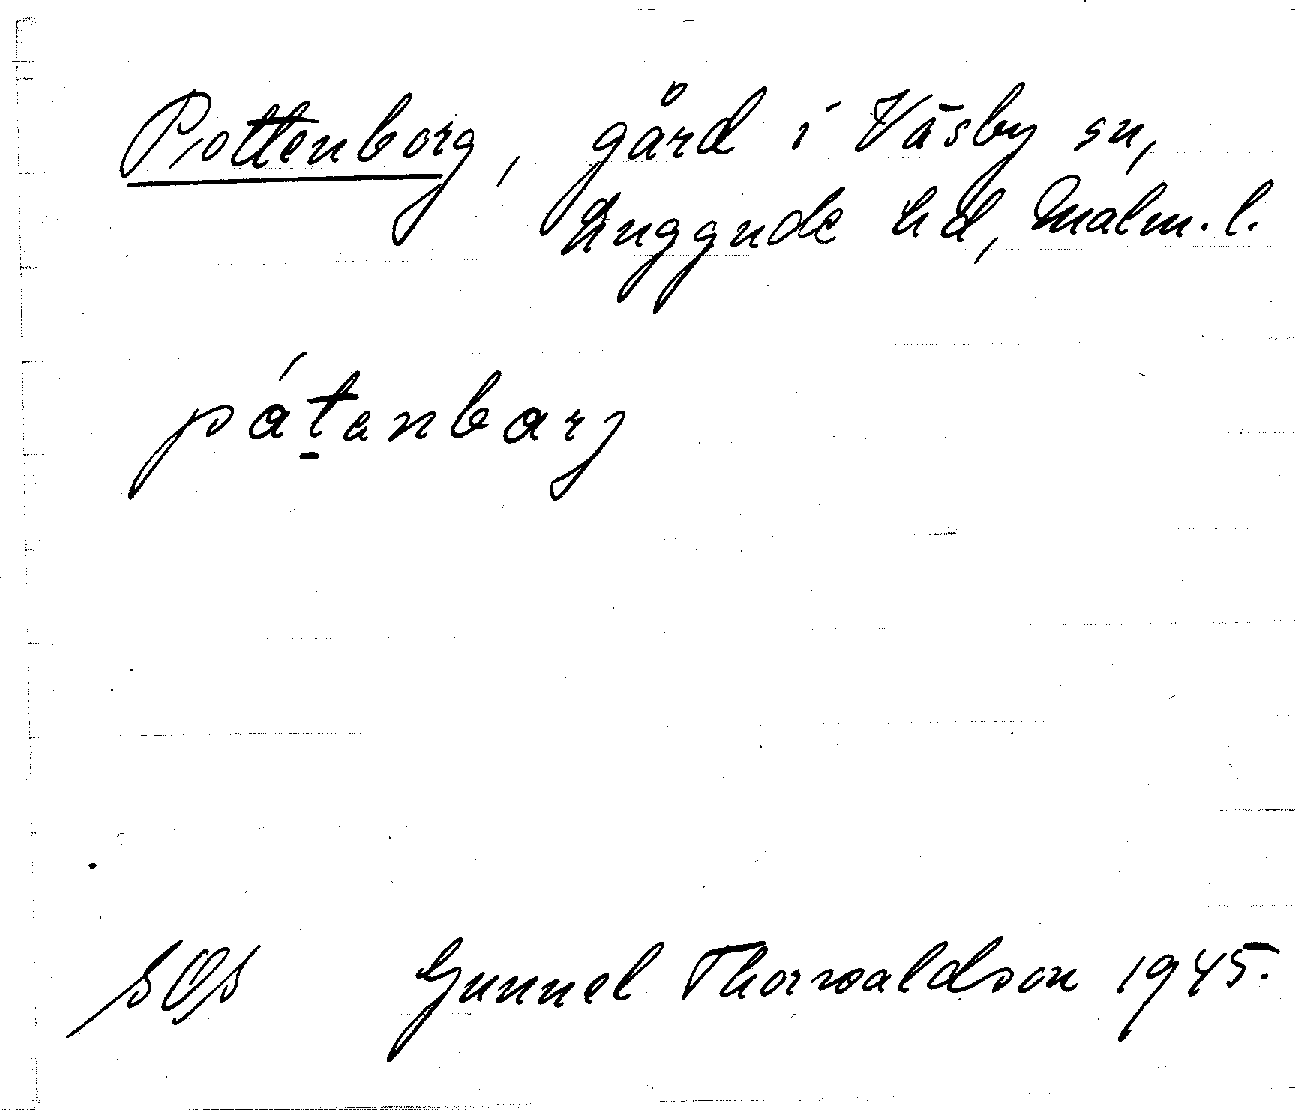 Pottenborg, gård i Väsby sn,
Luggude hd, Malm. l.
pátanbarj
SOS Gunnel Thorwaldson 1945.